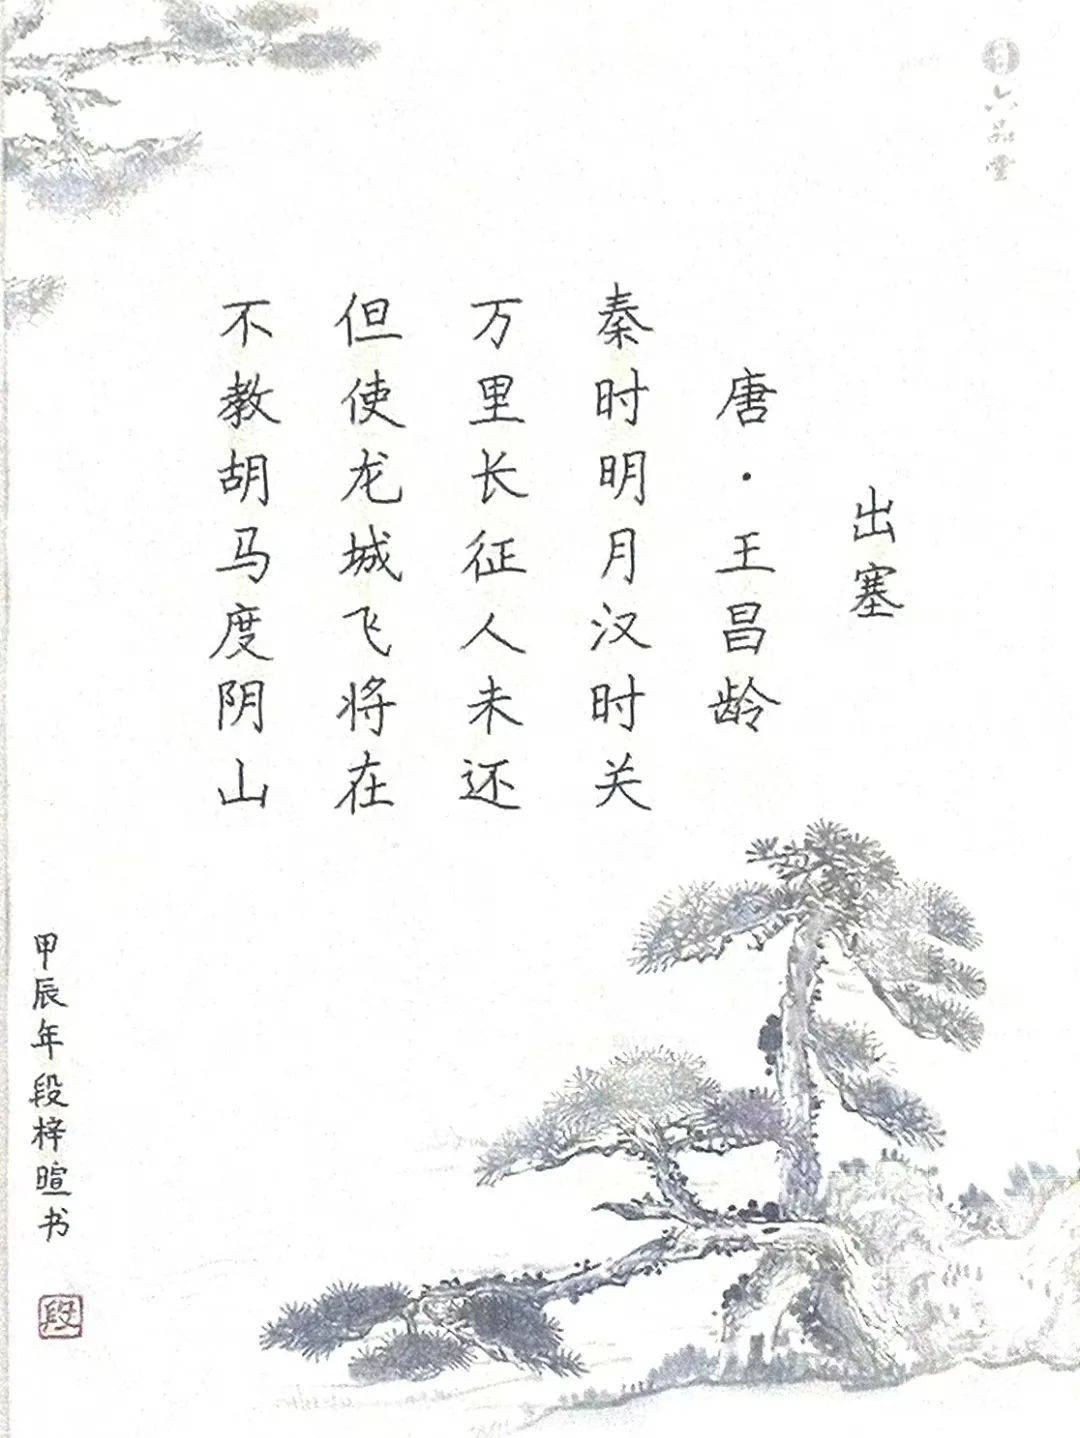 六品堂
出塞
唐·王昌龄
秦时明月汉时关
万里长征人未还
但使龙城飞将在
不教胡马度阴山
甲辰年段梓暄书
段